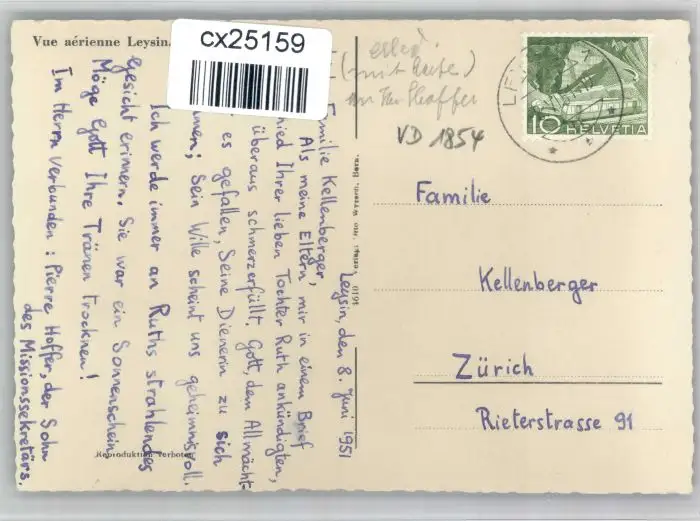 Vue aérienne Leysin.
cx25159
(mit Karte)
VD 1854
10 HELVETIA
Familie
Kellenberger
Zürich
Rieterstrasse 91
Leysin, den 8. Juni 1951
Familie Kellenberger,
Als meine Eltern mir in einem Brief
Ihrer lieben Tochter Ruth ankündigten,
überaus schmerzerfüllt. Gott, dem Allmächt-
es gefallen, Seine Dienerin zu sich
Sein Wille scheint uns geheimnisvoll.
Ich werde immer an Ruths strahlendes
Gesicht erinnern. Sie war ein Sonnenschein
Möge Gott Ihre Tränen trocknen!
Im Herrn verbunden: Pierre Hoffer, der Sohn
des Missionssekretärs.
Reproduktion verboten